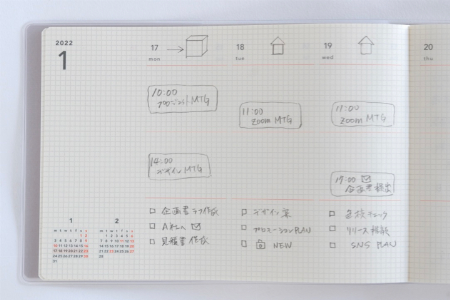 2022
1
17
mon
18
tue
19
wed
20
thu
10:00
プロジェクトMTG
11:00
zoom MTG
11:00
zoom MTG
14:00
デザインMTG
17:00
企画書提出
企画書ラフ作成
デザイン案
進捗チェック
Aさん
プロモーションPLAN
リリース確認
見積書作成
NEW
SNS PLAN
1
2